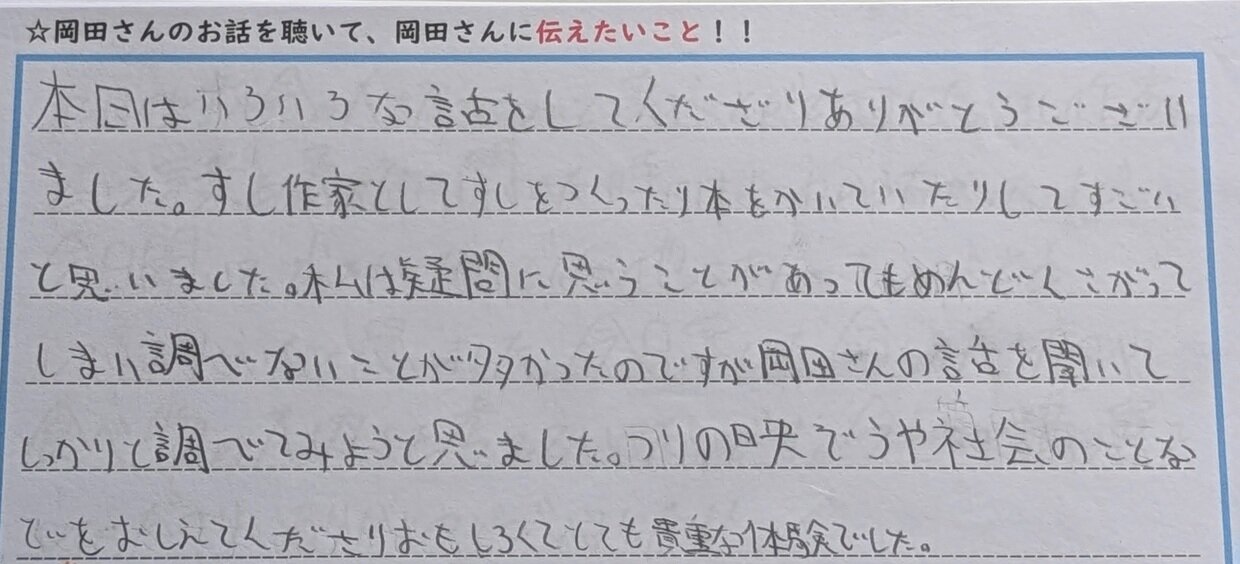 ☆岡田さんのお話を聴いて、岡田さんに伝えたいこと！！
本日はいろいろな話をしてくださりありがとうございい
ました。すし作家としてすしをつくったり本をかいていたりしてすごい
と思いました。私は疑問に思うことがあってもめんどくさがって
しまい調べないことが多かったのですが岡田さんの話を聞いて
しっかりと調べてみようと思いました。つりの映ぞうや社会のことな
どをおしえてくださりおもしろくてとても貴重な体験でした。